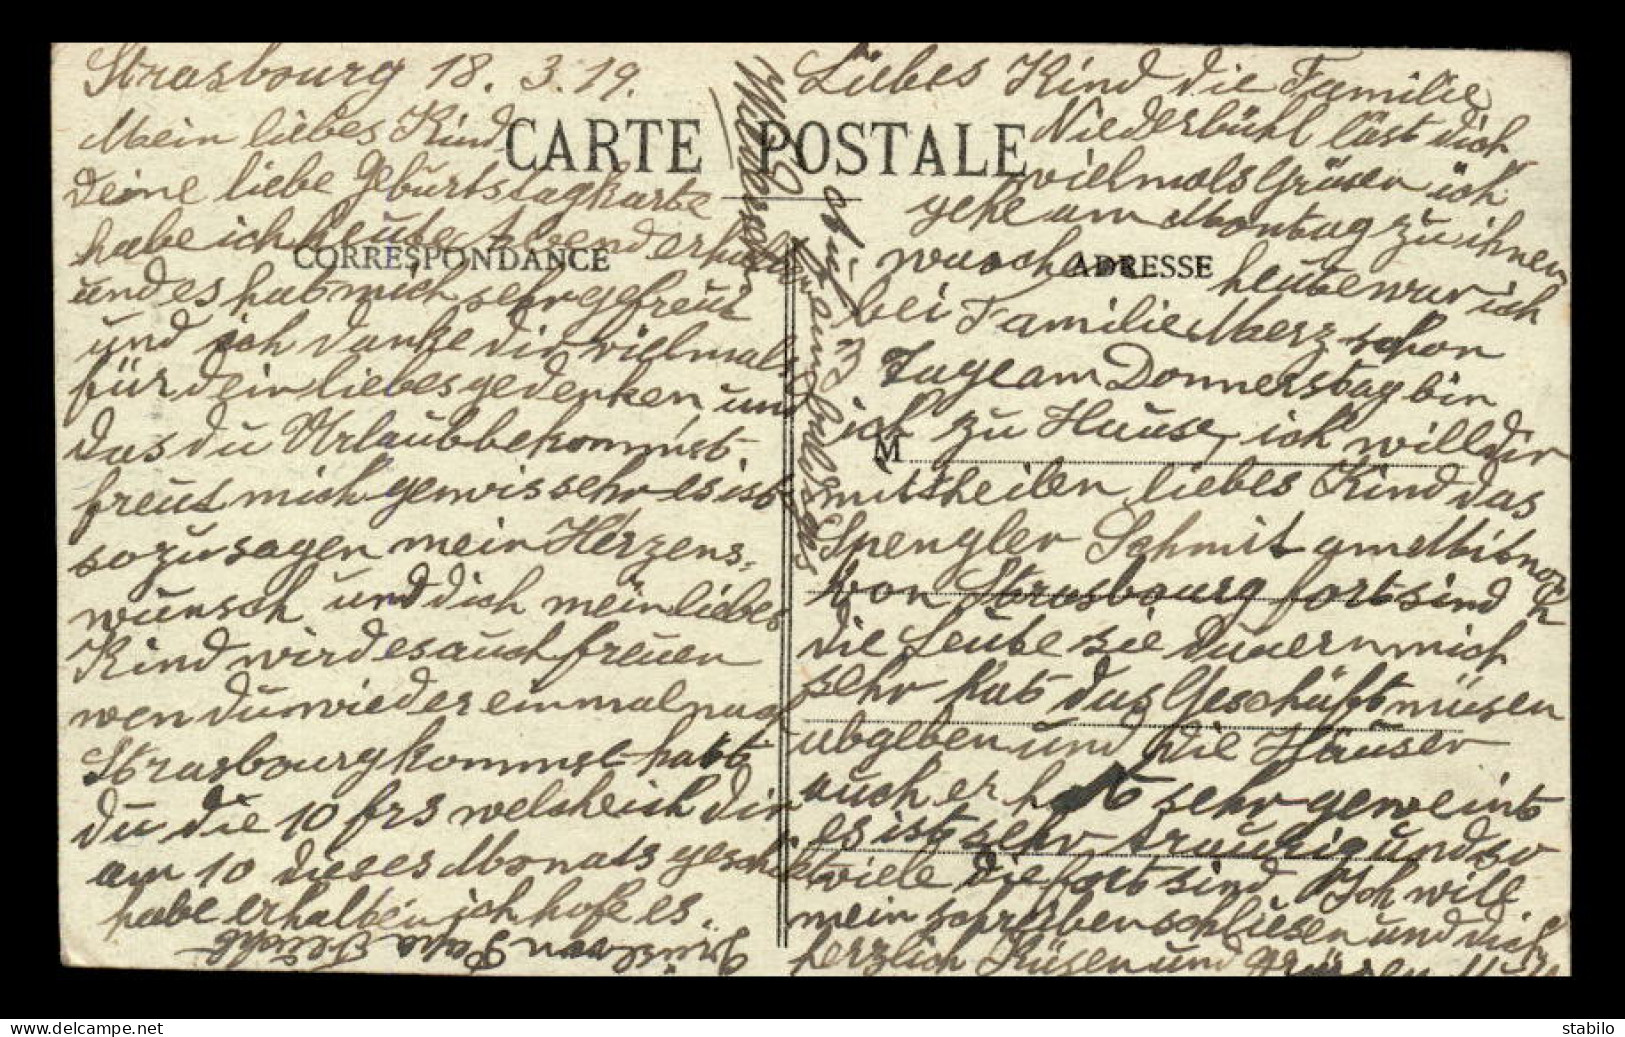 Strasbourg 18. 3. 19.
Mein liebes Kind
CARTE POSTALE
deine liebe Geburtstagkarte
habe ich heute Abend erhalten
CORRESPONDANCE
und es hat mich sehr gefreut
und ich danke dir vielmals
für dein liebes gedenken, und
das du Urlaub bekommst
freut mich gewis sehr es ist
sozusagen mein Herzens,
wunsch und dich mein liebes
Kind wird es auch freuen
wen du wieder einmal nach
Strasbourg kommst hatt
du die 10 frs welche ich dir
am 10 dieses Monats geschickt
habe erhalten, ich hofe es.
Gruss von Papa
auf
Wiedersehen
Liebes Kind die Familie
Niederbühl läst dich
vielmals Grüsen ich
gehe am Montag zu ihnen
wasche heute war ich
ADRESSE
bei Familie Merz schon
3 Tage am Donnerstag bin
ich zu Hause, ich will dir
M
mittheilen liebes Kind das
Spengler Schmit am Mitwoch
von Strasbourg fort sind
die Leute sie dauern mich
sehr hat das Geschäft müsen
abgeben und die Häuser
auch er hat sehr geweint
es ist sehr traurig und so
viele die fort sind. Ich will
mein schreiben schliesen und dich
herzlich Küsen und Grüssen
www.delcampe.net
stabilo